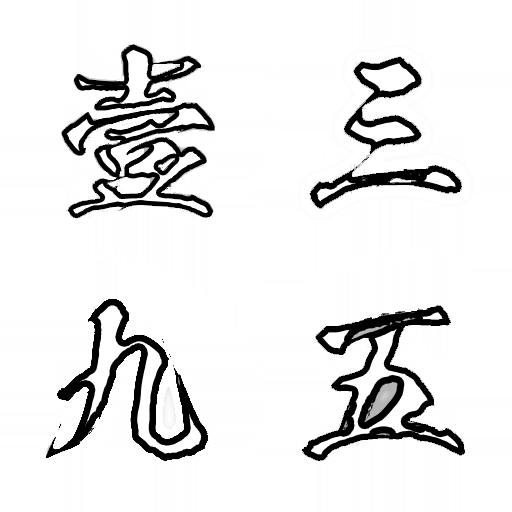 壹三
九五